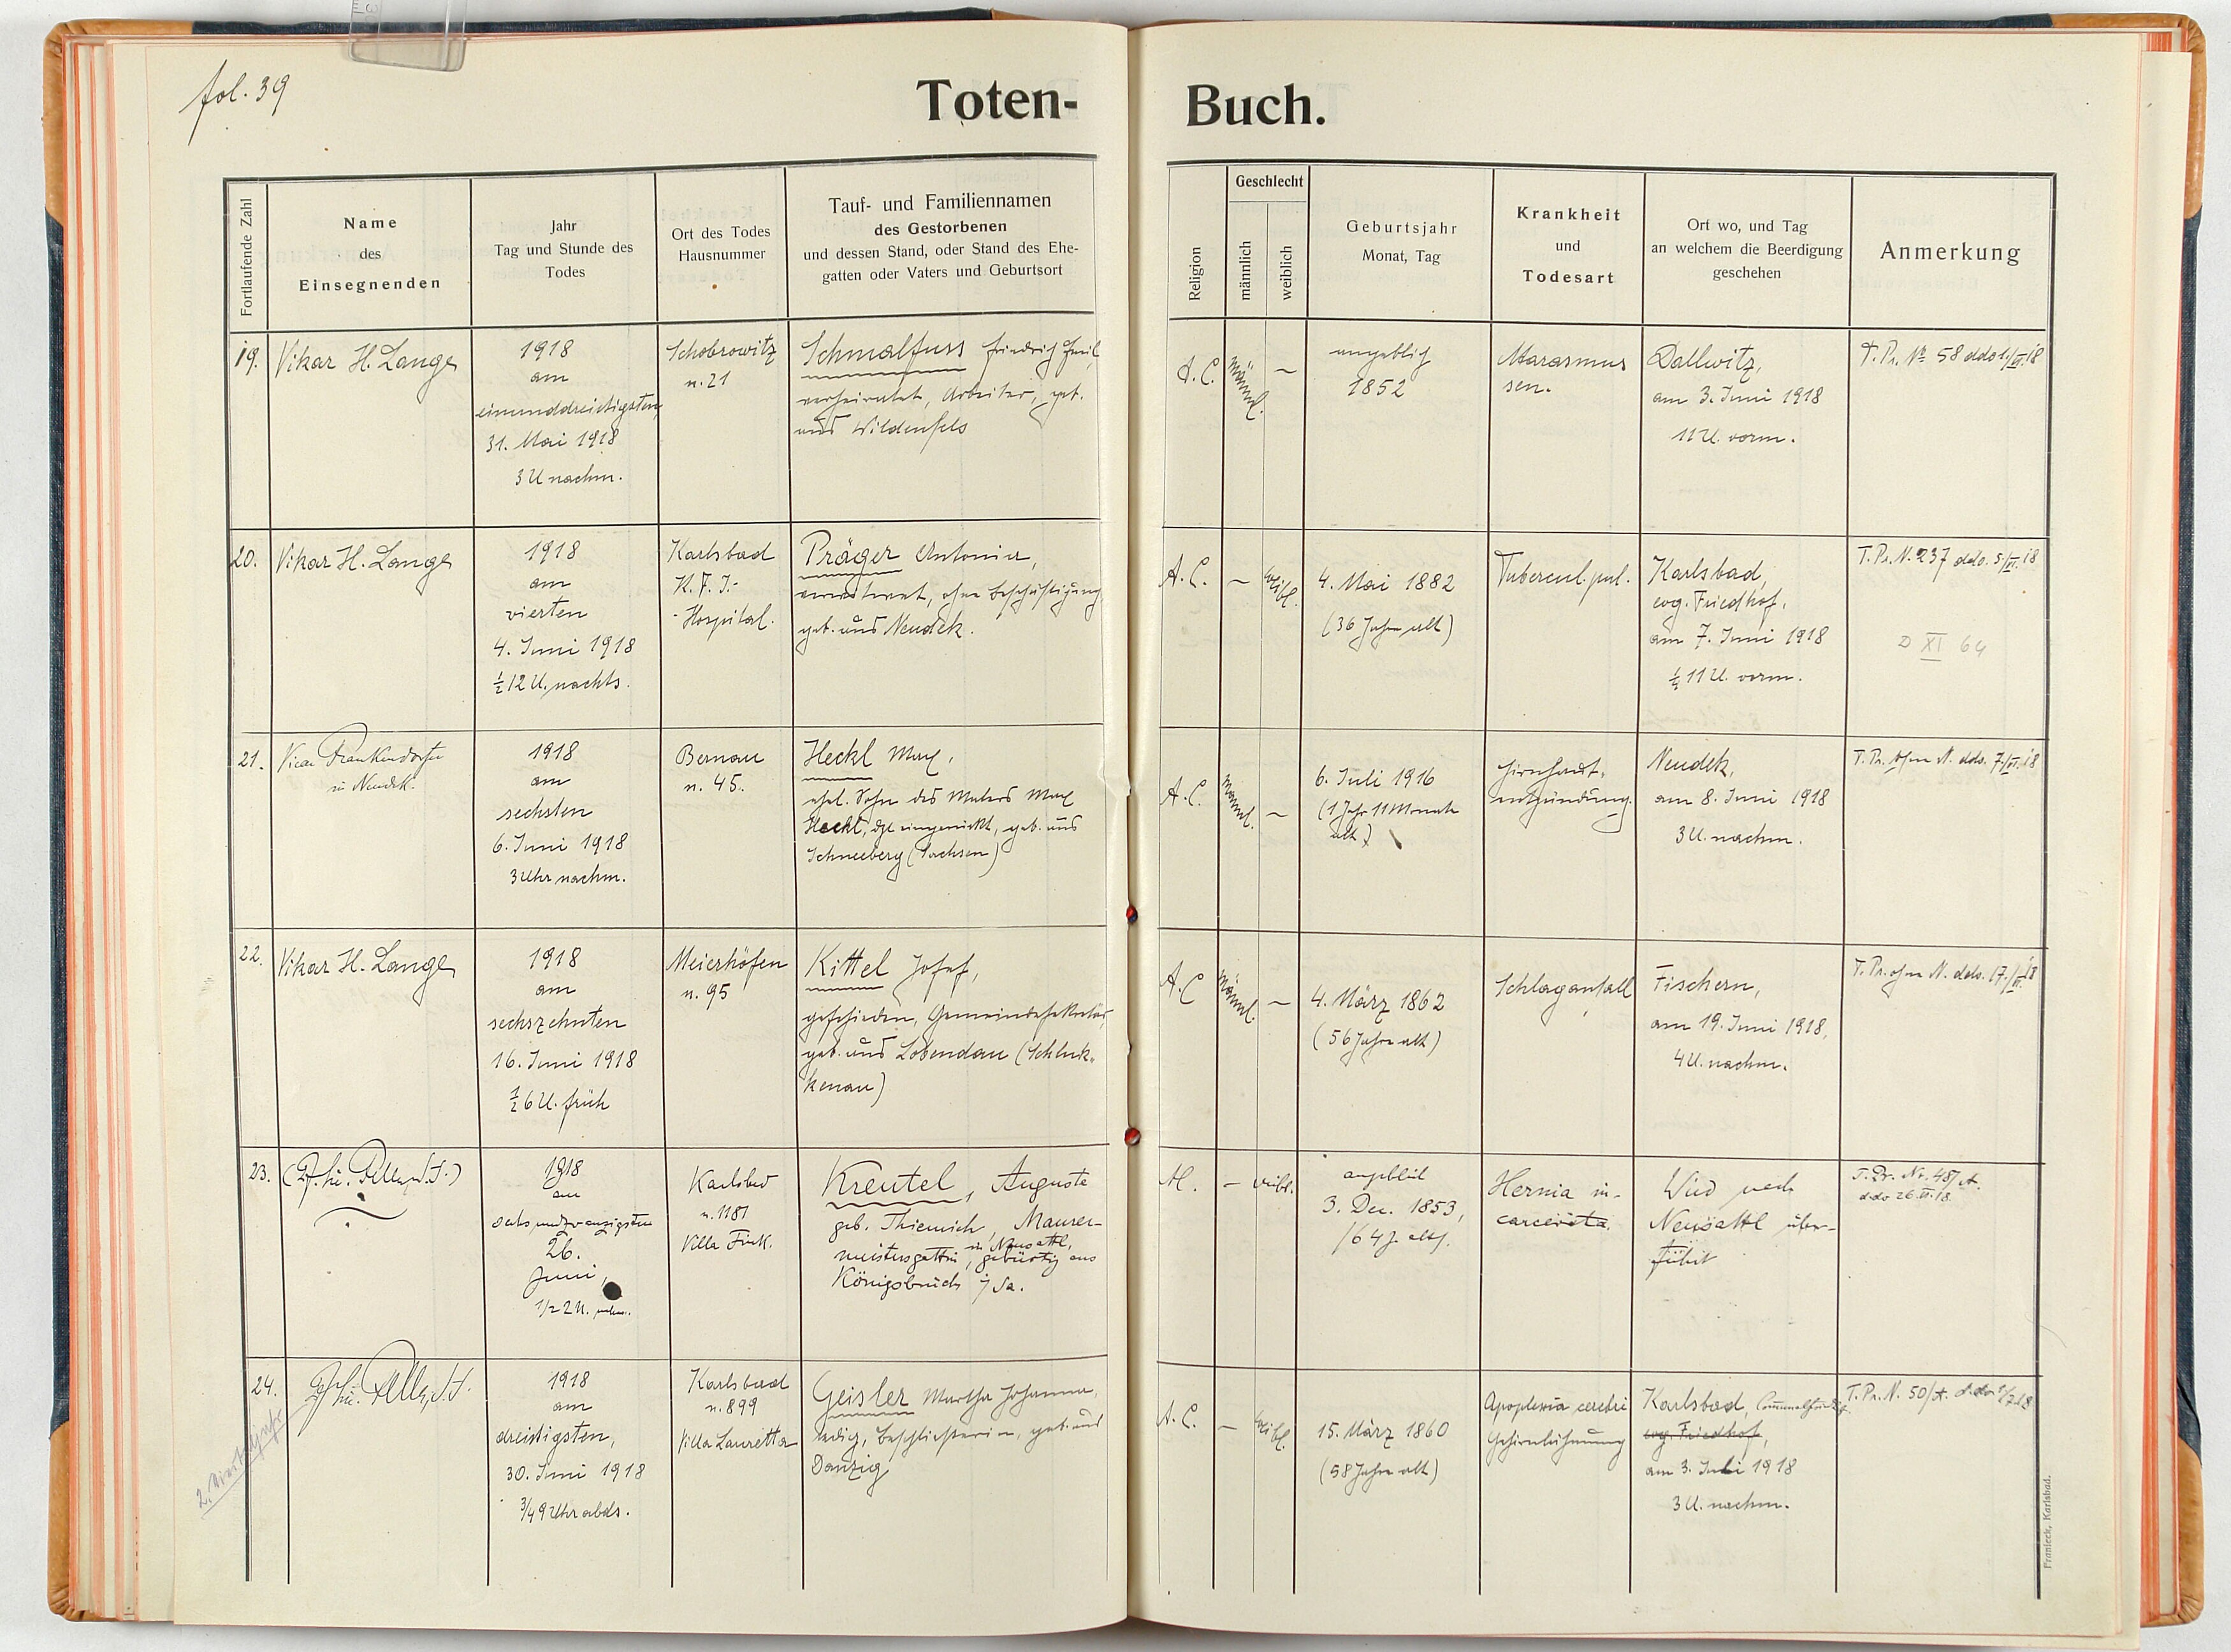 fol. 39
Toten-
Buch.
Fortlaufende Zahl
Name
des
Einsegnenden
Jahr
Tag und Stunde des
Todes
Ort des Todes
Hausnummer
Tauf- und Familiennamen
des Gestorbenen
und dessen Stand, oder Stand des Ehe-
gatten oder Vaters und Geburtsort
Religion
Geschlecht
männlich
weiblich
Geburtsjahr
Monat, Tag
Krankheit
und
Todesart
Ort wo, und Tag
an welchem die Beerdigung
geschehen
Anmerkung
19.
Vikar H. Lange
1918
am
einunddreißigsten
31. Mai 1918
3 U nachm.
Schobrowitz
n. 21
Schmalfuss Friedrich Emil,
verheiratet, Arbeiter, geb.
aus Wildenfels
A. C.
männl.
–
angeblich
1852
Marasmus
sen.
Dallwitz,
am 3. Juni 1918
11 U. vorm.
T. Pr. No 58 ddo 1./VI. 18
20.
Vikar H. Lange
1918
am
vierten
4. Juni 1918
½ 12 U. nachts.
Karlsbad
K. F. J.-
-Hospital.
Präger Antonia,
verwitwet, ohne Beschäftigung,
geb. aus Neudek.
A. C.
–
weibl.
4. Mai 1882
(36 Jahre alt)
Tubercul. pul.
Karlsbad,
evg. Friedhof,
am 7. Juni 1918
½ 11 U. vorm.
T. Pr. N. 237 ddo. 5/VI. 18
D XI 64
21.
Vicar Frankendorfer
in Neudek.
1918
am
sechsten
6. Juni 1918
3 Uhr nachm.
Bernau
n. 45.
Heckl Max,
ehel. Sohn des Malers Max
Heckl, dzt eingerückt, geb. aus
Schneeberg (Sachsen)
A. C.
männl.
–
6. Juli 1916
(1 Jahr 11 Monate
alt)
Hirnhaut-
entzündung.
Neudek,
am 8. Juni 1918
3 U. nachm.
T. Pr. ohne N. ddo. 7./VI. 18
22.
Vikar H. Lange
1918
am
sechszehnten
16. Juni 1918
½ 6 U. früh
Meierhöfen
n. 95
Kittel Josef,
geschieden, Gemeindesekretär,
geb. aus Lobendau (Schluk-
kenau)
A. C
männl.
–
4. März 1862
(56 Jahre alt)
Schlaganfall
Fischern,
am 19. Juni 1918,
4 U. nachm.
T. Pr. ohne N. ddo. 17./VI. 18
23.
1918
am
sechsundzwanzigsten
26.
Juni,
1/2 2 U.
Karlsbad
n. 1181
Villa Fink.
Kreutel, Auguste
geb. Thiemich, Maurer-
meistersgattin in Neusattl, gebürtig aus
Königsbruck i/Sa.
–
weibl.
angeblich
3. Dec. 1853,
/64 J. alt/.
Hernia in-
carcerata.
Wird nach
Neusattl über-
führt
T. Pr. Nr. 48/A.
ddo 26. VI. 18.
24.
1918
am
dreißigsten,
30. Juni 1918
3/4 9 Uhr abds.
Karlsbad
n. 899
Villa Lauretta
Geisler Martha Johanna,
ledig, Beschließerin, geb. aus
Danzig
A. C.
–
weibl.
15. März 1860
(58 Jahre alt)
Apoplexia cerebri
Gehirnlähmung
Karlsbad,
evg. Friedhof,
am 3. Juli 1918
3 U. nachm.
T. Pr. N. 50/A. ddo 1/7 18
2. Vierteljahr
Franieck, Karlsbad.